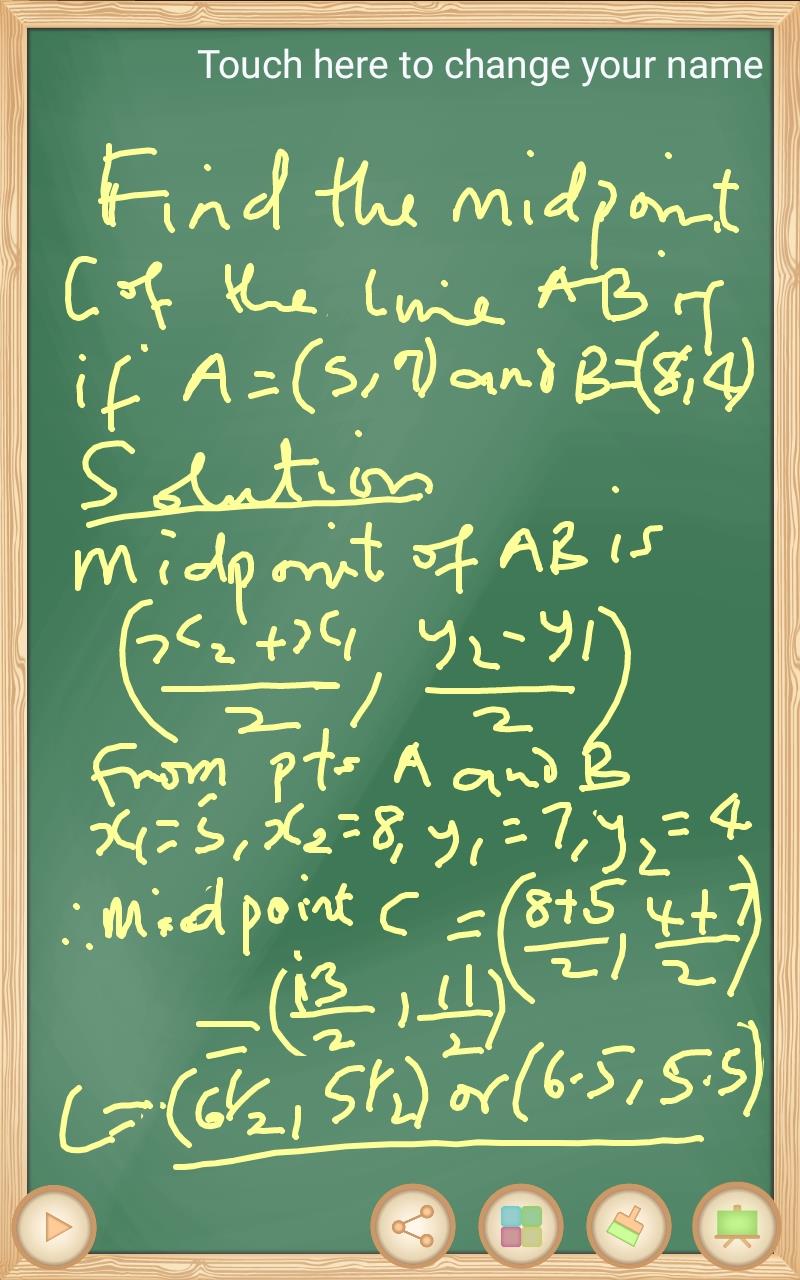 Touch here to change your name
Find the midpoint
C of the line AB if
if A = (5, 7) and B = (8, 4)
Solution
Midpoint of AB is
(x₂ + x₁ / 2, y₂ - y₁ / 2)
From pts A and B
x₁ = 5, x₂ = 8, y₁ = 7, y₂ = 4
∴ Midpoint C = (8+5 / 2, 4+7 / 2)
= (13 / 2, 11 / 2)
C = (6 1/2, 5 1/2) or (6.5, 5.5)